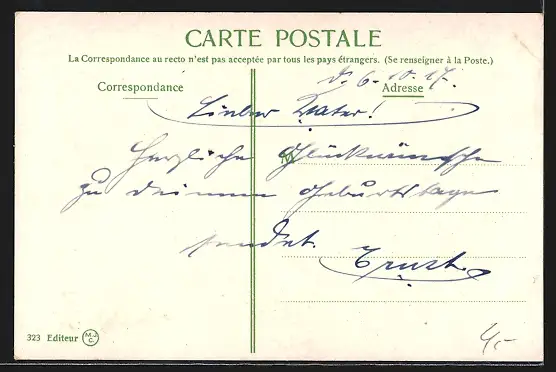 CARTE POSTALE
La Correspondance au recto n'est pas acceptée par tous les pays étrangers. (Se renseigner à la Poste.)
d. 6.10.17.
Correspondance
Adresse
Lieber Vater!
Herzliche Glückwünsche
M
zu deinem Geburtstage
sendet
Ernst.
323 Editeur M.J.C.
4,-